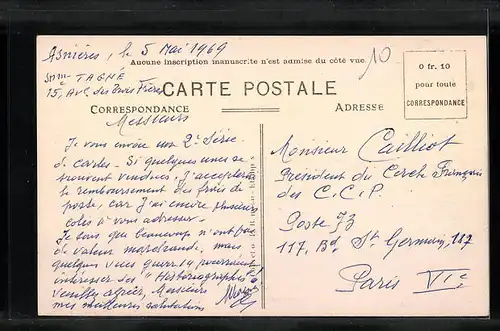 Asnières, le 5 Mai 1969
Aucune inscription manuscrite n'est admise du côté vue.
10
0 fr. 10
pour toute
CORRESPONDANCE
Mme TAGNÉ
15, Av. des Trois Frères
CARTE POSTALE
CORRESPONDANCE
ADRESSE
Messieurs
Je vous envoie ma 2e Série
de cartes. Si quelques unes se
trouvent vendues, j'accepterai
le remboursement des frais de
poste, car j'ai encore plusieurs
colis à vous adresser.
Je sais que beaucoup n'ont pas
de valeur marchande, mais
quelques vues pourraient
intéresser des "Historiographes"
Veuillez agréer, Messieurs
mes meilleures salutations
Monsieur Cailliot
Président du Cercle Français
des C.C.P.
Poste JZ
117, Bd St Germain, 117
Paris VIe